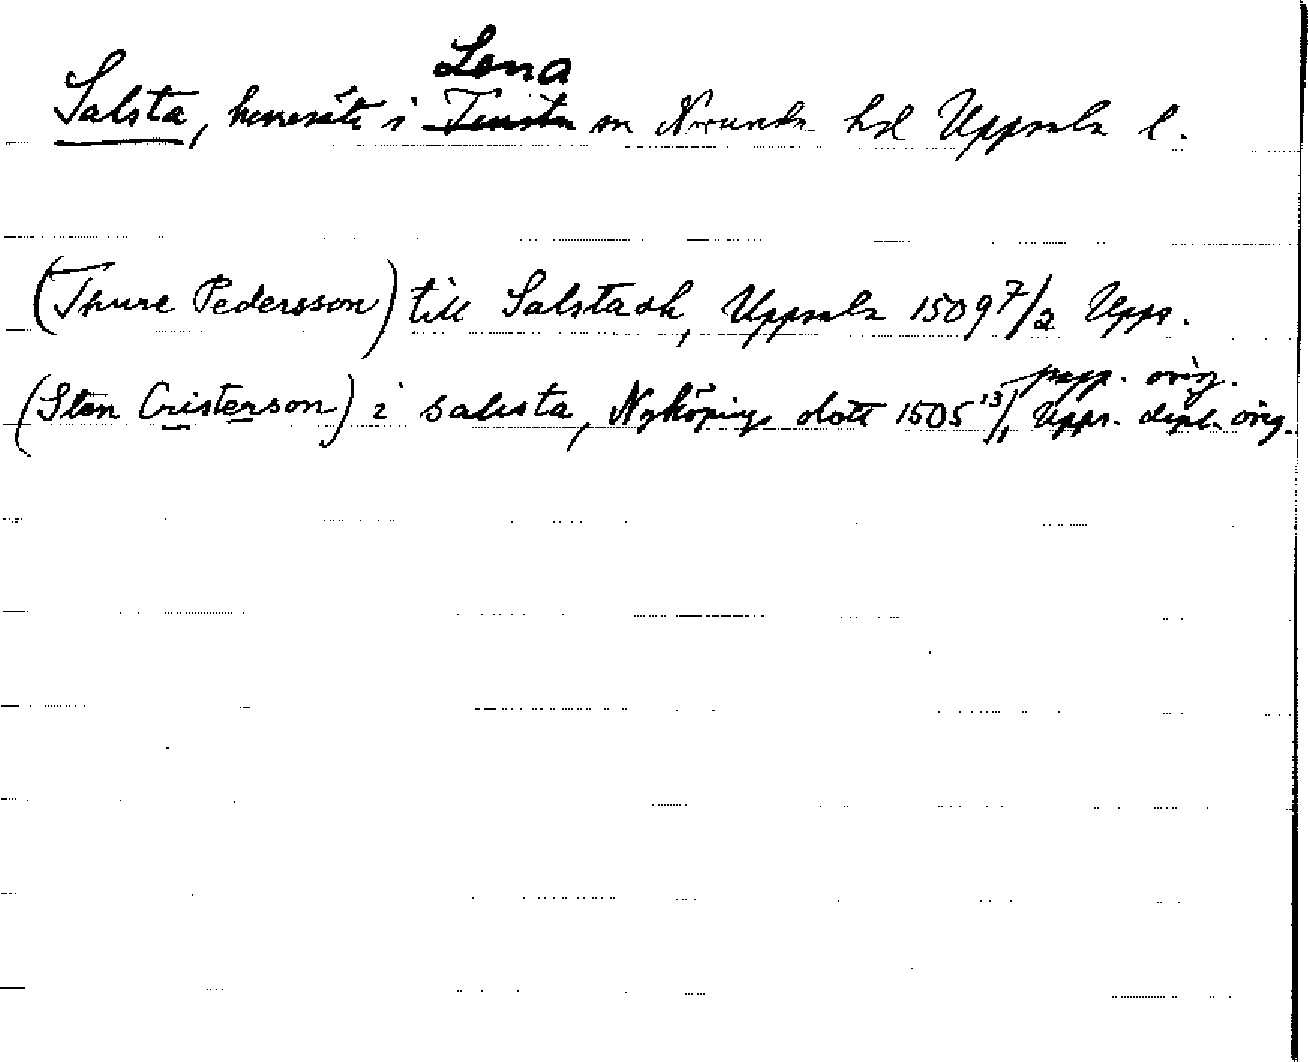 Lena
Salsta, herresäte i Tensta sn Norunda hd Uppsala l.
(Thure Pedersson) till Salstadh, Uppsala 1509 7/2 Upps.
papp. orig.
(Sten Cristerson) i salista, Nyköpings slott 1505 13/1 Upps. dipl. orig.